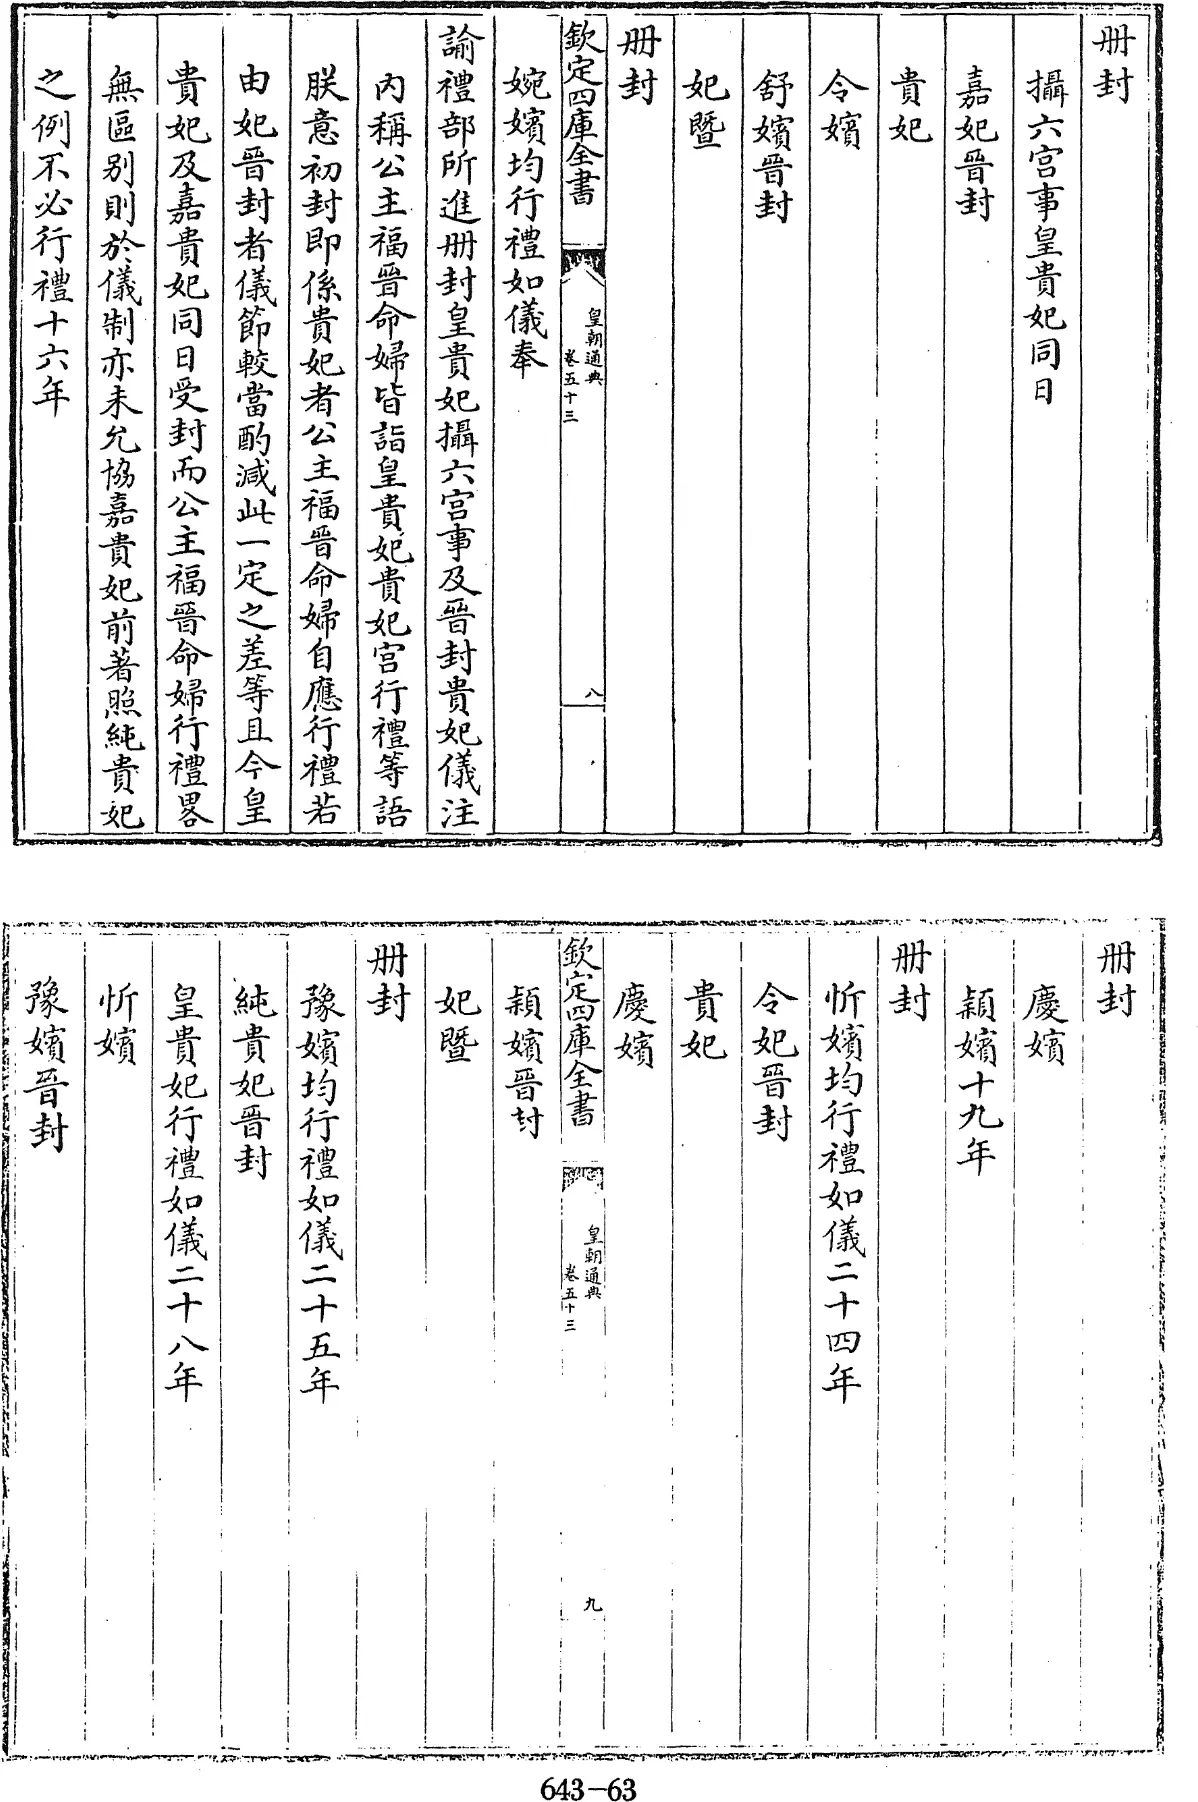 册封
攝六宫事皇貴妃同日
嘉妃晉封
貴妃
令嬪
舒嬪晉封
妃暨
册封
欽定四庫全書
皇朝通典
卷五十三
八
婉嬪均行禮如儀奉
諭禮部所進册封皇貴妃攝六宫事及晉封貴妃儀注
内稱公主福晉命婦皆詣皇貴妃貴妃宫行禮等語
朕意初封即係貴妃者公主福晉命婦自應行禮若
由妃晉封者儀節較當酌減此一定之差等且今皇
貴妃及嘉貴妃同日受封而公主福晉命婦行禮畧
無區别則於儀制亦未允協嘉貴妃前著照純貴妃
之例不必行禮十六年
册封
慶嬪
穎嬪十九年
册封
忻嬪均行禮如儀二十四年
令妃晉封
貴妃
慶嬪
欽定四庫全書
皇朝通典
卷五十三
九
穎嬪晉封
妃暨
册封
豫嬪均行禮如儀二十五年
純貴妃晉封
皇貴妃行禮如儀二十八年
忻嬪
豫嬪晉封
643-63